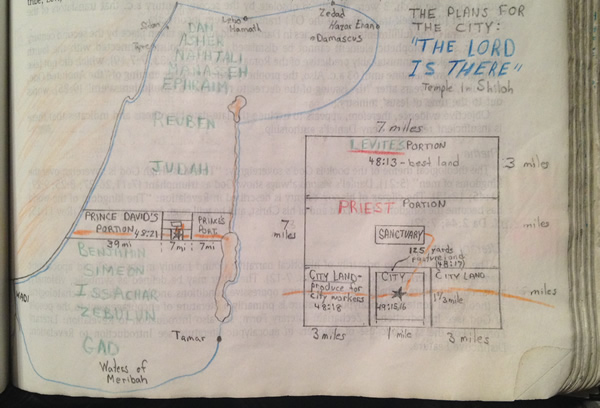 Sidon
Tyre
Lebo
Hamath
Zedad
Hazar Enan
Damascus
DAN
ASHER
NAHTALI
MANASSEH
EPHRAIM
REUBEN
JUDAH
PRINCE DAVID'S
PORTION 48:21
39mi
7mi
PRINCE'S
PORT.
7mi
BENJAMIN
SIMEON
ISSACHAR
ZEBULUN
GAD
Tamar
Waters of
Meribah
THE PLANS FOR
THE CITY:
"THE LORD
IS THERE"
Temple in Shiloh
7 miles
LEVITES PORTION
48:13-best land
3 miles
PRIEST PORTION
miles
7
miles
SANCTUARY
125 yards
pastureland
(48:17)
CITY LAND-
produce for
city workers
48:18
CITY
CITY LAND
1⅓ mile
miles
3 miles
1 mile
3 miles